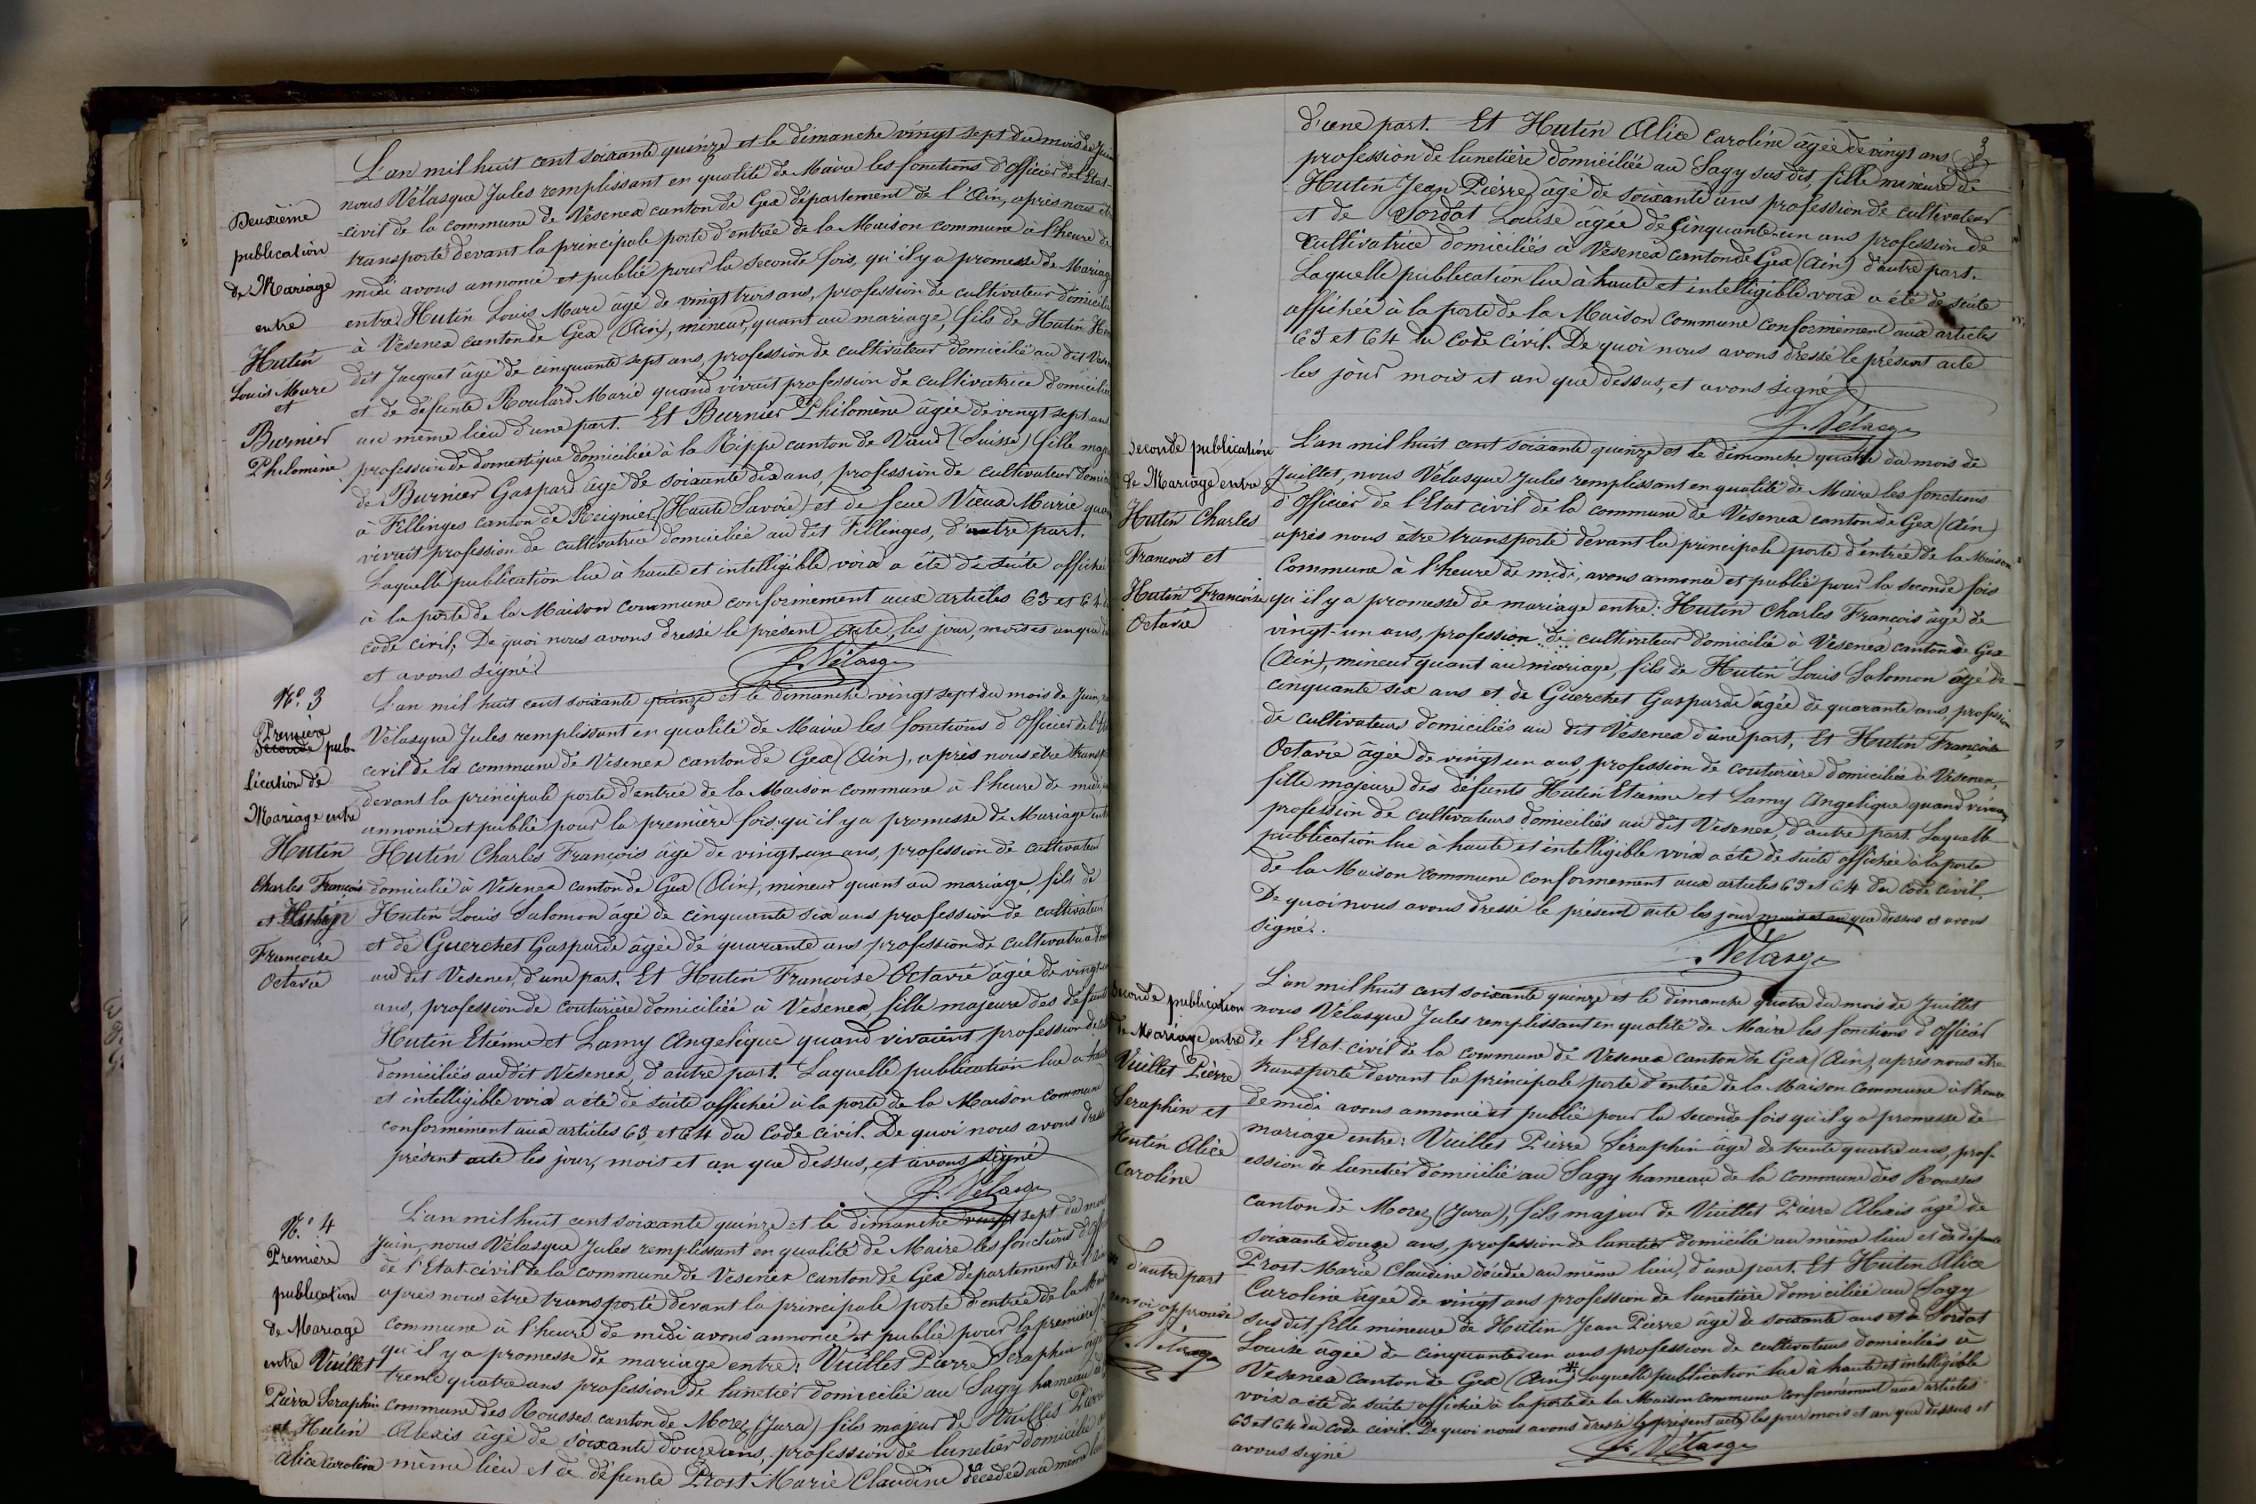 Deuxième
publication
de Mariage
entre
Hutin
Louis Marc
et
Burnier
Philomène
L'an mil huit cent soixante quinze et le dimanche vingt sept du mois de Juin
nous Vélasque Jules remplissant en qualité de Maire les fonctions d'Officier de l'Etat-
-civil de la commune de Vesenex canton de Gex département de l'Ain, après nous être
transporté devant la principale porte d'entrée de la Maison commune à l'heure de
midi avons annoncé et publié pour la seconde fois, qu'il y a promesse de Mariage
entre Hutin Louis Marc âgé de vingt trois ans, profession de cultivateur domicilié
à Vesenex canton de Gex (Ain), mineur, quant au mariage, fils de Hutin
dit Jacquet âgé de cinquante sept ans, profession de cultivateur domicilié au dit
et de défunte Roulard Marie quand vivait profession de cultivatrice domiciliée
au même lieu d'une part. Et Burnier Philomène âgée de vingt sept ans
profession de domestique domiciliée à la Rippe canton de Vaud (Suisse) fille
de Burnier Gaspard âgé de soixante dix ans, profession de cultivateur
à Fillinges canton de Reignier (Haute Savoie) et de feue Vieux Marie
vivait profession de cultivatrice domiciliée au dit Fillinges, d'autre part.
Laquelle publication lue à haute et intelligible voix a été de suite affichée
à la porte de la Maison commune conformément aux articles 63 et 64
code civil, De quoi nous avons dressé le présent acte, les jour, mois et an que
et avons signé
J. Vélasque
N.° 3
Première
Seconde pub-
lication de
Mariage entre
Hutin
Charles François
et Hutin
Françoise
Octavie
L'an mil huit cent soixante quinze et le dimanche vingt sept du mois de Juin,
Vélasque Jules remplissant en qualité de Maire les fonctions d'Officier de
civil de la commune de Vesenex canton de Gex (Ain), après nous être
devant la principale porte d'entrée de la Maison commune à l'heure de midi
annoncé et publié pour la première fois qu'il y a promesse de Mariage
Hutin Charles François âgé de vingt-un ans, profession de cultivateur
domicilié à Vesenex canton de Gex (Ain), mineur quant au mariage, fils de
Hutin Louis Salomon âgé de cinquante six ans profession de cultivateur
et de Guerchet Gasparde âgée de quarante ans profession de cultivatrice
au dit Vesenex, d'une part. Et Hutin Françoise Octavie âgée de vingt-
ans, profession de couturière domiciliée à Vesenex, fille majeure des défunts
Hutin Etienne et Lamy Angelique quand vivaient profession de
domiciliés au dit Vesenex, d'autre part. Laquelle publication lue a haute
et intelligible voix a été de suite affichée à la porte de la Maison commune
conformément aux articles 63 et 64 du Code civil. De quoi nous avons dressé
présent acte les jour, mois et an que dessus, et avons signé
J. Vélasque
N.° 4
Première
publication
de Mariage
entre Vuillet
Pierre Seraphin
et Hutin
Alice Caroline
L'an mil huit cent soixante quinze et le dimanche vingt sept du mois
Juin, nous Vélasque Jules remplissant en qualité de Maire les fonctions
de l'Etat-civil de la commune de Vesenex canton de Gex département de l'Ain
après nous être transporté devant la principale porte d'entrée de la
commune à l'heure de midi avons annoncé et publié pour la première
qu'il y a promesse de mariage entre: Vuillet Pierre Seraphin âgé
trente quatre ans profession de lunetier domicilié au Sagy hameau
commune des Rousses canton de Morez (Jura) fils majeur de Vuillet Pierre
Alexis âgé de soixante douze ans, profession de lunetier domicilié
même lieu et de défunte Prost Marie Claudine décédée au même
3
d'une part. Et Hutin Alice Caroline âgée de vingt ans
profession de lunetière domiciliée au Sagy sus dit, fille mineure de
Hutin Jean Pierre âgé de soixante ans profession de cultivateur
et de Sordat Louise agée de Cinquante-un ans profession de
Cultivatrice domiciliés à Vesenex canton de Gex (Ain) d'autre part.
Laquelle publication lue à haute et intelligible voix a été de suite
affichée à la porte de la Maison commune conformément aux articles
63 et 64 du Code civil. De quoi nous avons dressé le présent acte
les jour mois et an que dessus, et avons signé
J. Vélasque
Seconde publication
de Mariage entre
Hutin Charles
Francois et
Hutin Francoise
Octavie
L'an mil huit cent soixante quinze et le dimanche quatre du mois de
Juillet, nous Vélasque Jules remplissant en qualité de Maire les fonctions
d'Officier de l'Etat civil de la commune de Vesenex canton de Gex (Ain)
après nous être transporté devant la principale porte d'entrée de la Maison
Commune à l'heure de midi, avons annoncé et publié pour la seconde fois
qu'il y a promesse de mariage entre: Hutin Charles François âgé de
vingt-un ans, profession de cultivateur domicilié à Vesenex canton de Gex
(Ain), mineur quant au mariage, fils de Hutin Louis Salomon âgé de
cinquante six ans et de Guerchet Gasparde âgée de quarante ans, profession
de cultivateurs domiciliés au dit Vesenex d'une part, Et Hutin Françoise
Octavie âgée de vingt un ans, profession de couturière domiciliée à Vesenex,
fille majeure des défunts Hutin Etienne et Lamy Angelique quand vivaient
profession de cultivateurs domiciliés au dit Vesenex, d'autre part. Laquelle
publication lue à haute et intelligible voix a été de suite affichée à la porte
de la Maison commune conformement aux articles 63 et 64 du Code civil.
De quoi nous avons dressé le présent acte les jour mois et an que dessus et avons
signé.
J. Vélasque
Seconde publication
de Mariage entre
Vuillet Pierre
Seraphin et
Hutin Alice
Caroline
L'an mil huit cent soixante quinze et le dimanche quatre du mois de Juillet
nous Vélasque Jules remplissant en qualité de Maire les fonctions d'Officier
de l'Etat-civil de la commune de Vesenex canton de Gex (Ain), après nous être
transporté devant la principale porte d'entrée de la Maison commune à l'heure
de midi avons annoncé et publié pour la seconde fois qu'il y a promesse de
mariage entre: Vuillet Pierre Séraphin âgé de trente quatre ans, prof-
ession de lunetier domicilié au Sagy hameau de la commune des Rousses
canton de Morez (Jura), fils majeur de Vuillet Pierre Alexis âgé de
soixante douze ans, profession de lunetier domicilié au même lieu et de défunte
Prost Marie Claudine décédée au même lieu, d'une part. Et Hutin Alice
Caroline âgée de vingt ans profession de lunetière domiciliée au Sagy
sus dit fille mineure de Hutin Jean Pierre âgé de soixante ans et de Sordat
Louise âgée de cinquante un ans profession de cultivateurs domiciliés à
Vesenex canton de Gex (Ain)* Laquelle publication lue à haute et intelligible
voix a été de suite affichée à la porte de la Maison commune conformément aux articles
63 et 64 du Code civil. De quoi nous avons dressé le présent acte, les jour mois et an que dessus et
avons signé
J. Vélasque
d'autre part
renvoi approuvé
J. Vélasque